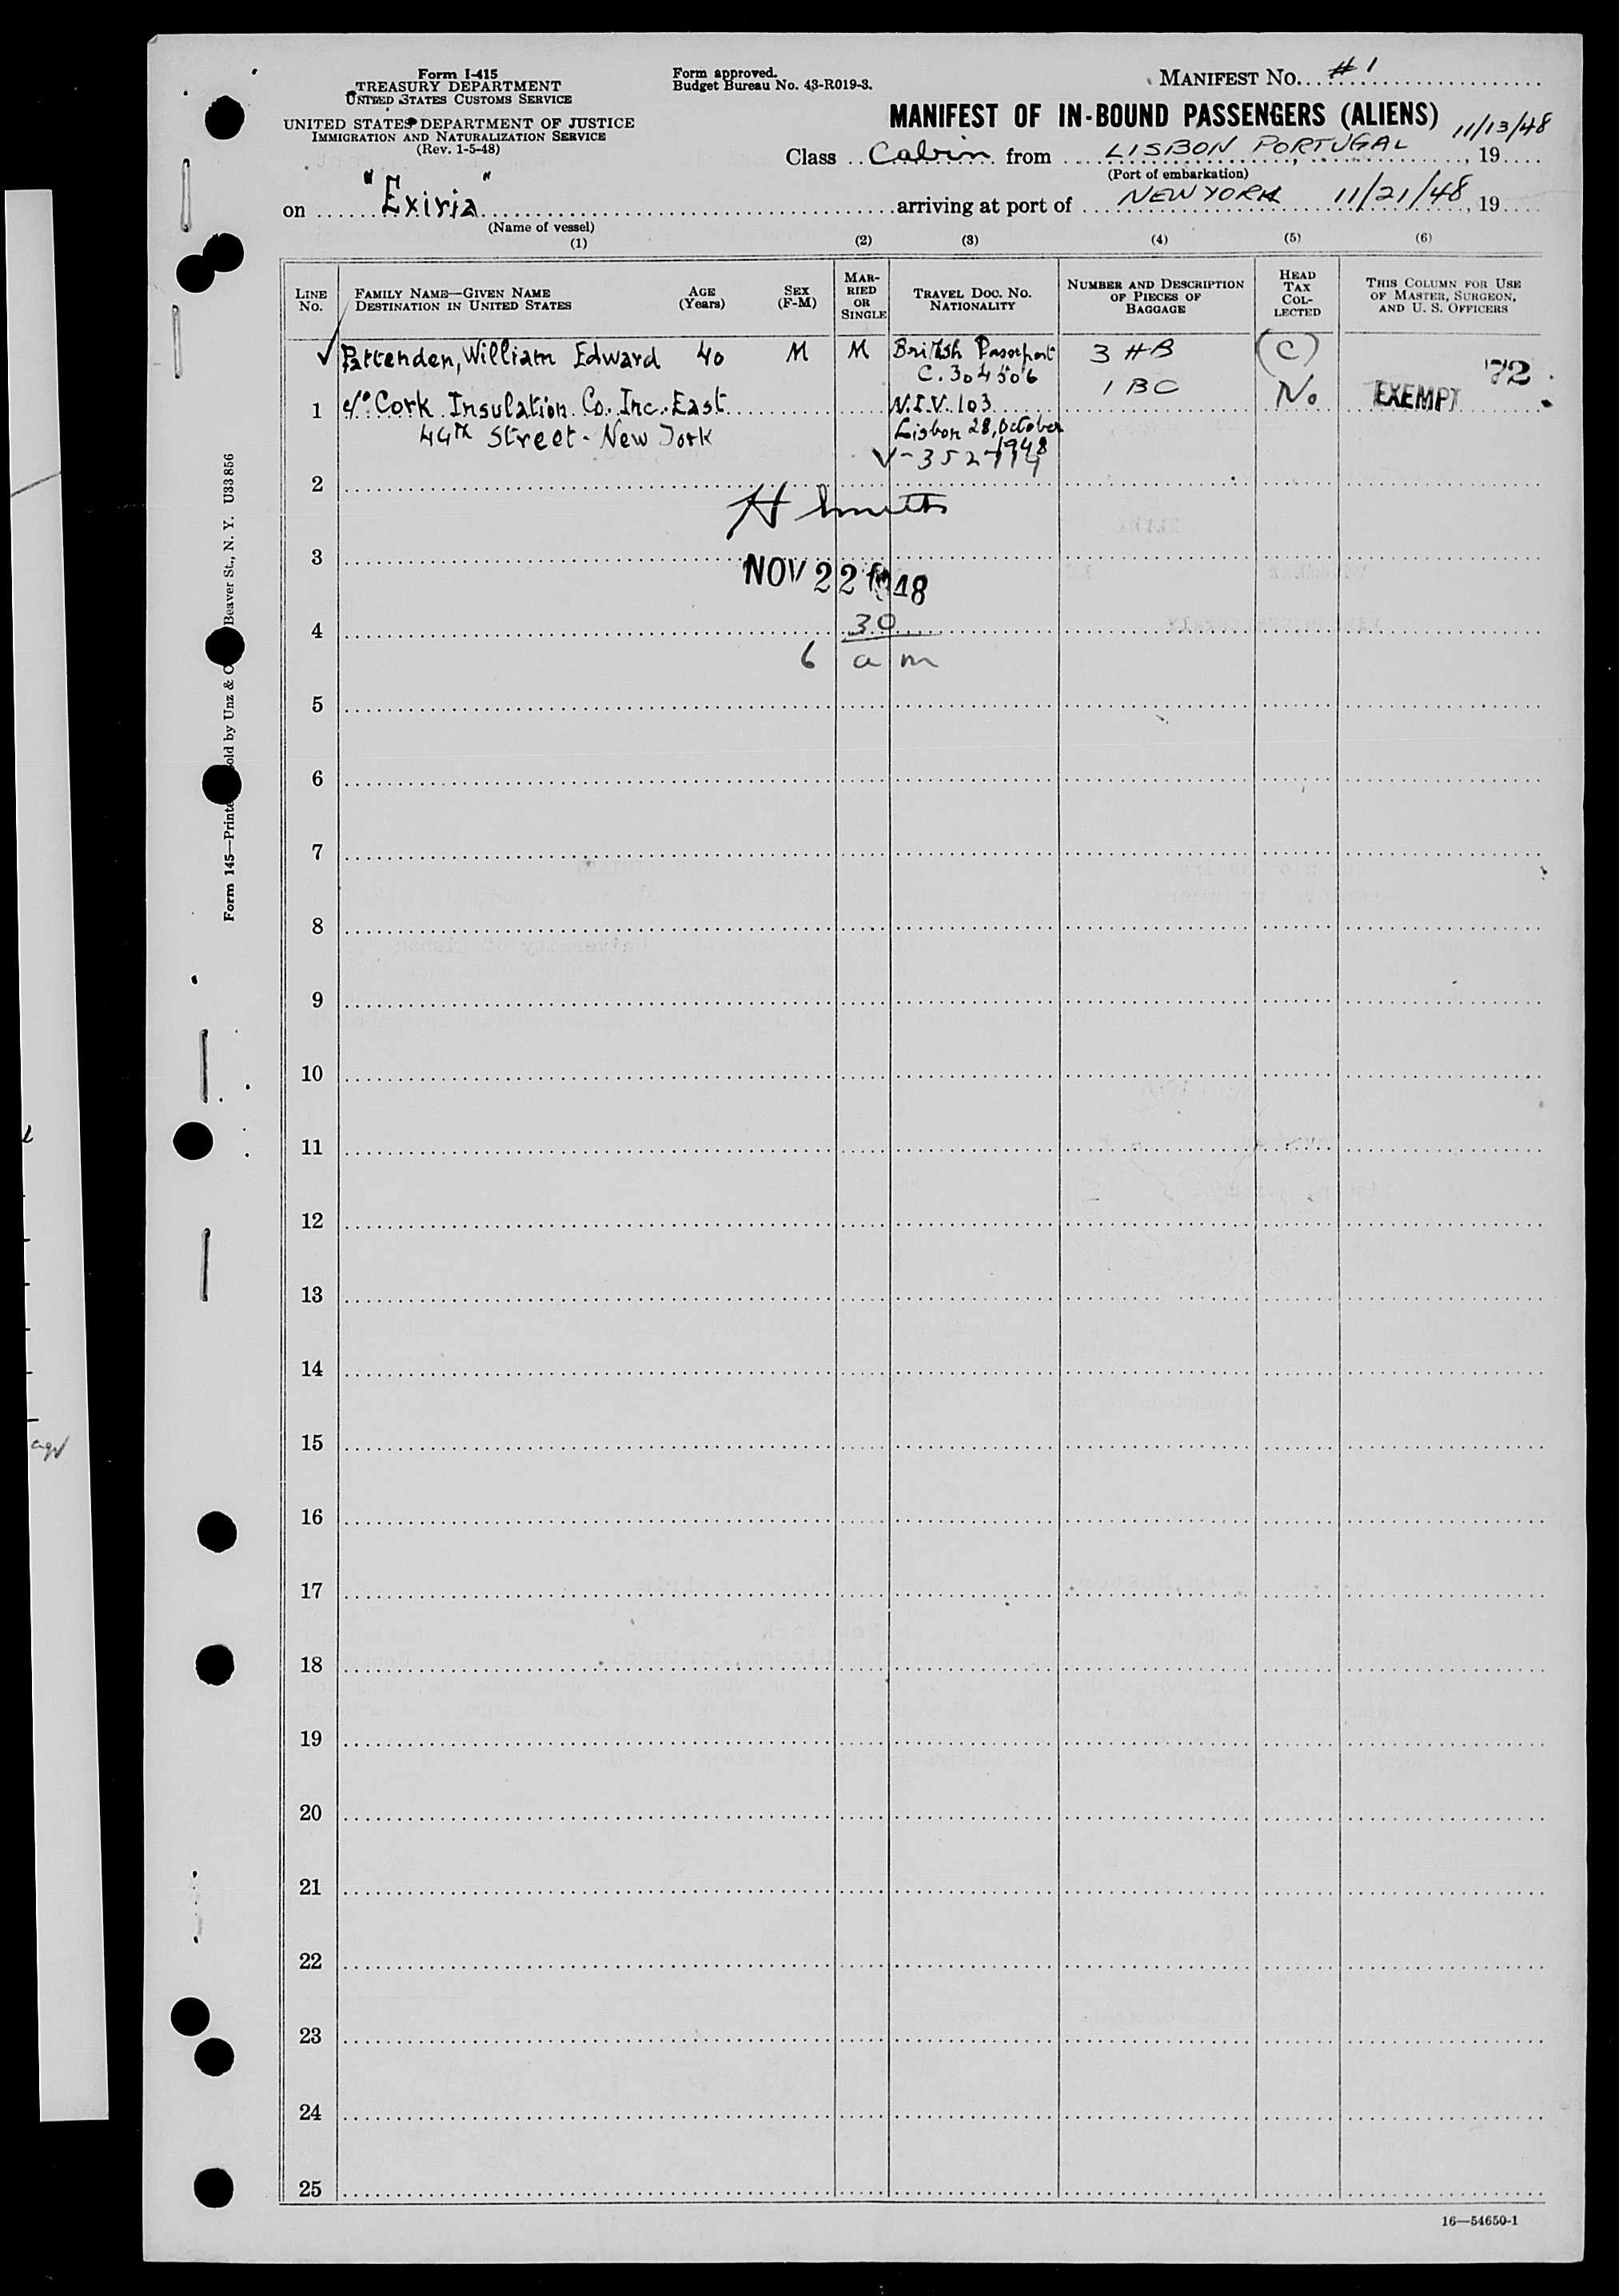 Form I-415
TREASURY DEPARTMENT
UNITED STATES CUSTOMS SERVICE
UNITED STATES DEPARTMENT OF JUSTICE
IMMIGRATION AND NATURALIZATION SERVICE
(Rev. 1-5-48)
Form approved.
Budget Bureau No. 43-R019-3.
MANIFEST NO. #1
MANIFEST OF IN-BOUND PASSENGERS (ALIENS)
11/13/48
Class Cabin from LISBON PORTUGAL, 19
(Port of embarkation)
on "Exiria" arriving at port of NEW YORK 11/21/48, 19
(Name of vessel)
(1) (2) (3) (4) (5) (6)
LINE NO.
FAMILY NAME—GIVEN NAME
DESTINATION IN UNITED STATES
AGE (Years)
SEX (F-M)
MARRIED OR SINGLE
TRAVEL DOC. NO. NATIONALITY
NUMBER AND DESCRIPTION OF PIECES OF BAGGAGE
HEAD TAX COLLECTED
THIS COLUMN FOR USE OF MASTER, SURGEON, AND U. S. OFFICERS
Pattenden, William Edward 40 M M British Passport 3 HB (C) 72
C. 304506 1 BC No EXEMPT
1 c/o Cork Insulation Co. Inc. East N.I.V. 103
44th Street - New York Lisbon 28, October 1948
V-352719
2
H Smith
3
NOV 22 1948
4
30
6 am
5
6
7
8
9
10
11
12
13
14
15
16
17
18
19
20
21
22
23
24
25
16—54650-1
Form 145—Printed
Sold by Unz & Co
Beaver St., N. Y. U33856